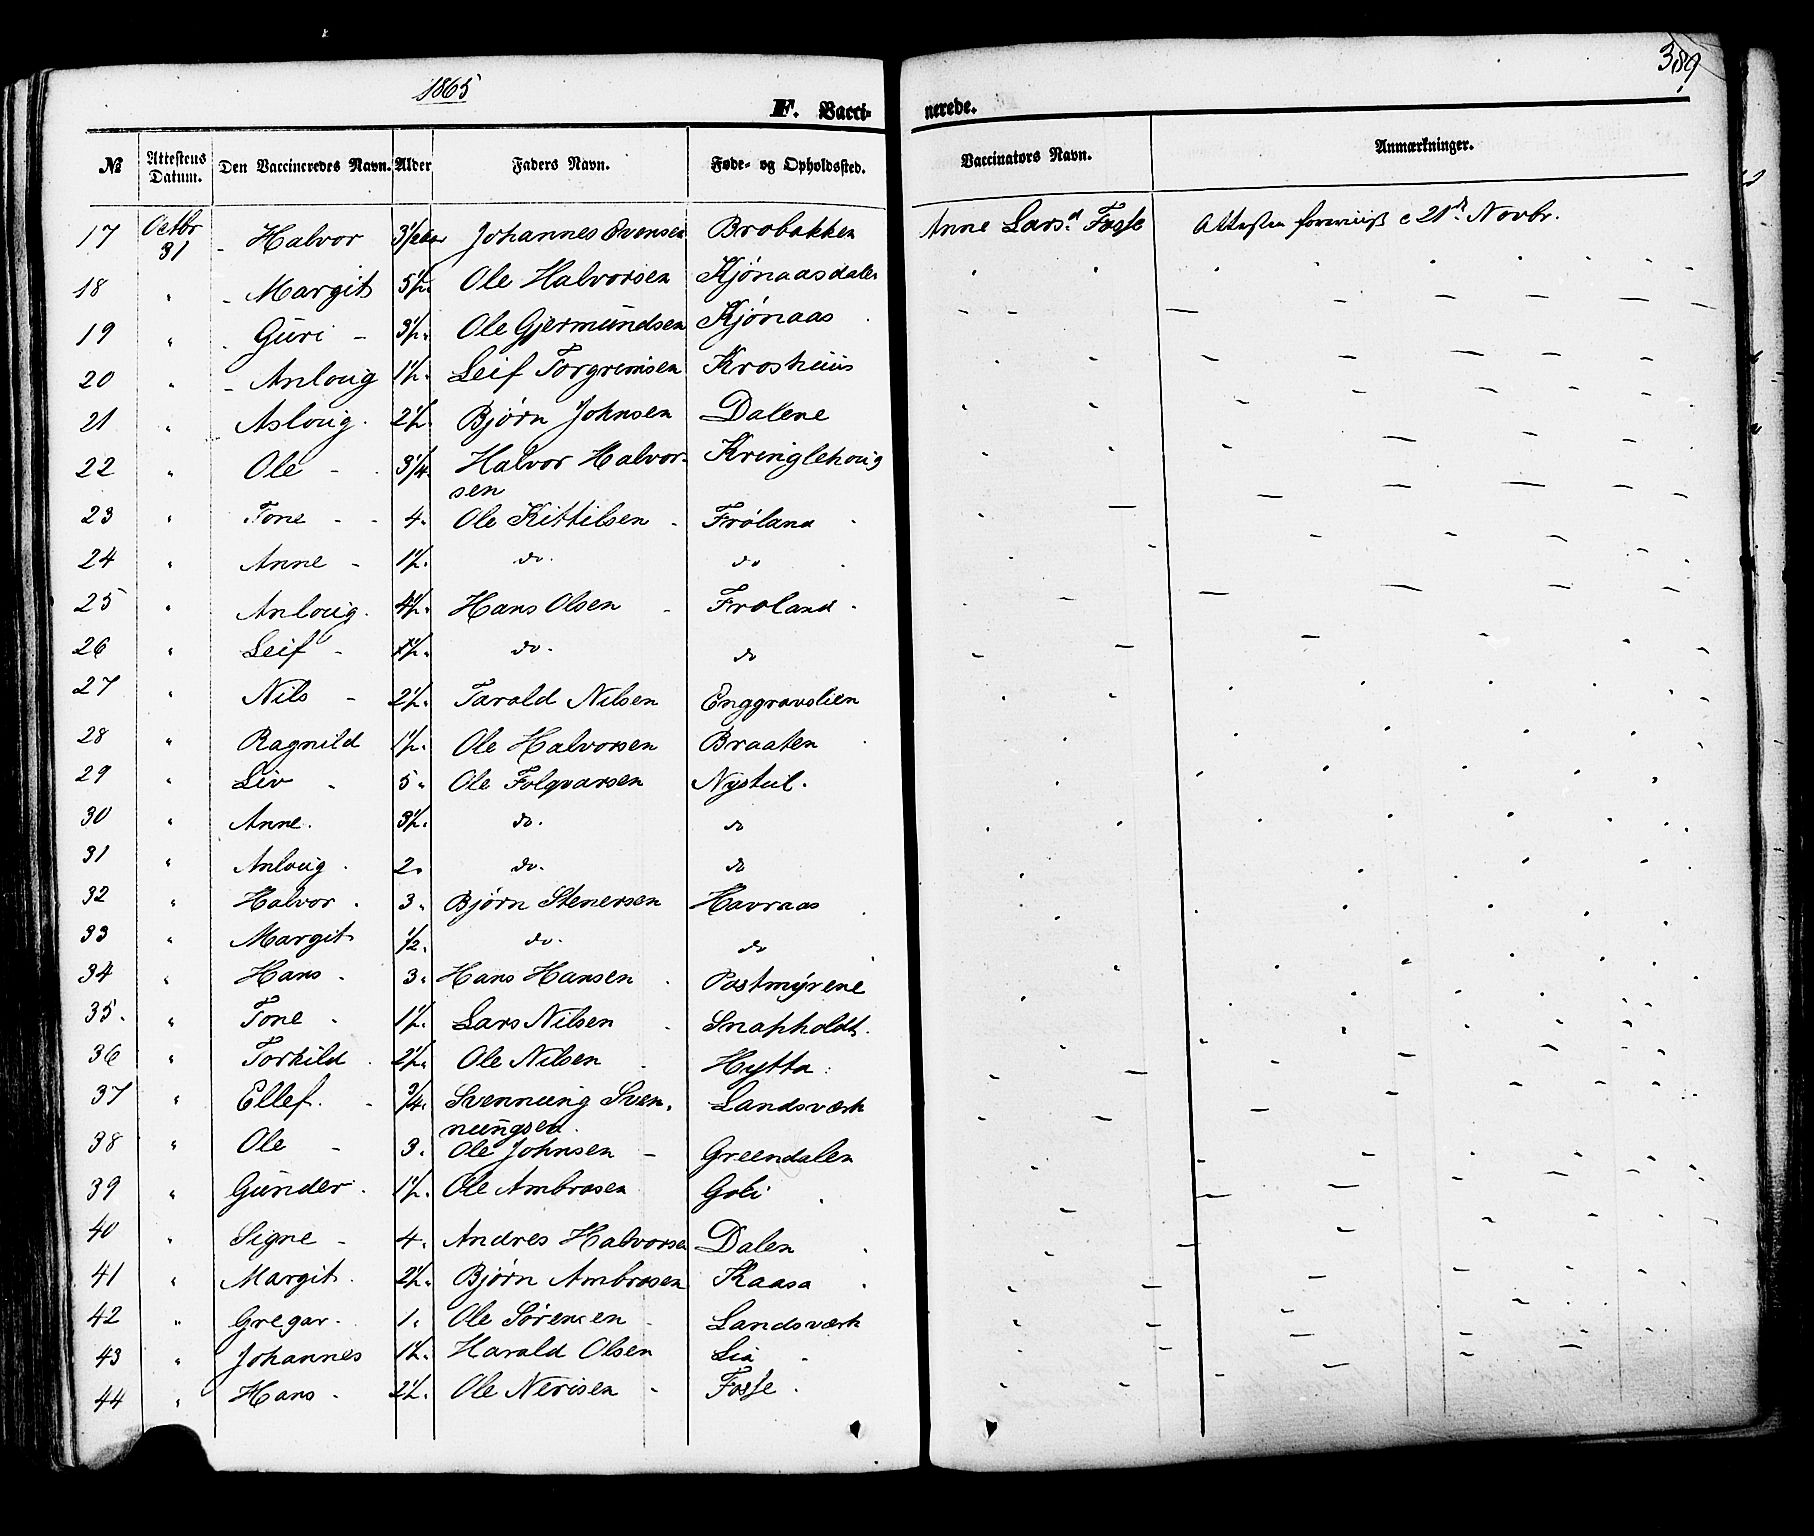 1865
389
F. Vacci-
nerede.
№ Attestens Datum. Den Vaccineredes Navn. Alder Faders Navn. Føde- og Opholdssted. Vaccinators Navn. Anmærkninger.
17 Octbr 31 Halvor 3½ Johannes Svensen Brobakken Anne Larsd. Fosse Attesten 21de Novbr.
18 " Margit 5½ Ole Halvorsen Kjönaasdalen
19 " Guri - 3½ Ole Gjermundsen Kjönaas
20 " Anloug 1½ Leif Torgrimsen Kroshuus
21 " Asloug 2½ Bjørn Johnsen Dalene
22 " Ole - 3¼ Halvor Halvor-
sen Kringlehoug
23 " Tone - - 4 Ole Kittilsen Fröland
24 " Anne - 1½ do. do
25 " Anloug. 4½ Hans Olsen Froland
26 " Leif - 1½ do. do
27 " Nils - 2½ Tarald Nilsen Enggravslien
28 " Ragnild 1½ Ole Halvorsen Braaten
29 " Liv 5 Ole Folqvarsen Nystul.
30 " Anne. 3½ do. do
31 " Anloug. 2 do. do
32 " Halvor. 3 Bjørn Stenersen Havraas
33 " Margit ½ do. do
34 " Hans. 3 Hans Hansen Postmyrene
35. " Tone 1½ Lars Nilsen Snapholdt.
36 " Torkild 2½ Ole Nilsen Hytta
37 " Ellef. ¾ Svennung Sven-
nungsen. Landsværk
38 " Ole - 3. Ole Johnsen - Greendalen
39 " Gunder. 1½ Ole Ambrosen Goli
40 " Signe - 4. Andres Halvorsen Dalen
41 " Margit. 2½ Bjørn Ambrosen Kaasa
42 " Gregar. 1. Ole Sørensen Landsværk
43 " Johannes 1½ Harald Olsen Lia
44 " Hans - 2½ Ole Nerisen Fosse